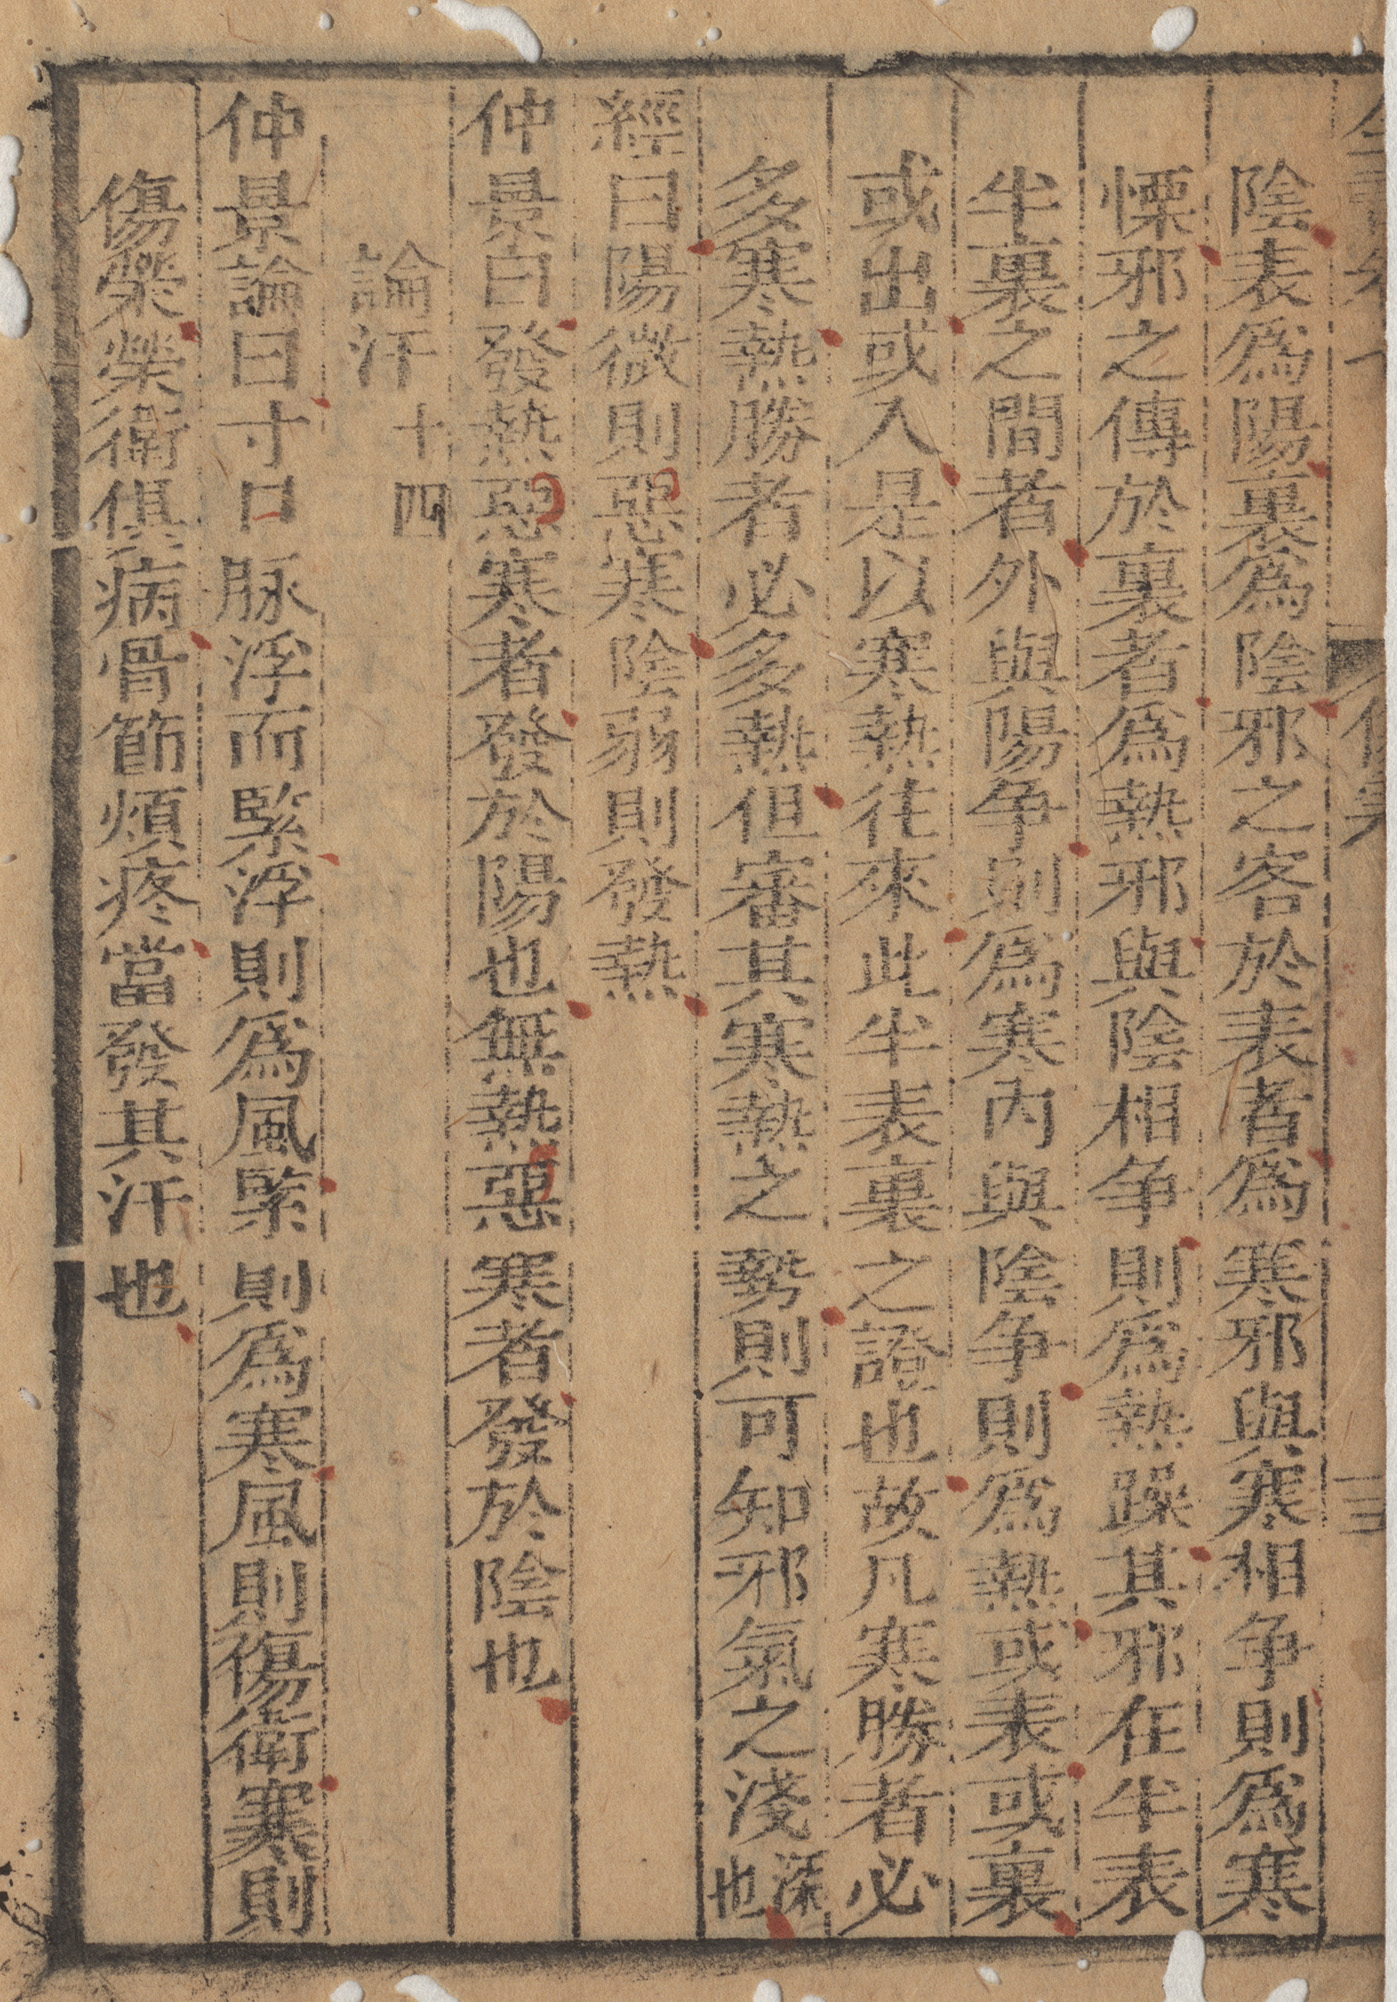 陰表爲陽裏爲陰邪之客於表者爲寒邪與寒相争則爲寒
慄邪之傳於裏者爲熱邪與陰相争則爲熱躁其邪在半表
半裏之間者外與陽争則爲寒内與陰争則爲熱或表或裏
或出或入是以寒熱往來此半表裏之證也故凡寒勝者必
多寒熱勝者必多熱但審其寒熱之勢則可知邪氣之淺深也
經曰陽微則惡寒陰弱則發熱
仲景曰發熱惡寒者發於陽也無熱惡寒者發於陰也
論汗十四
仲景論曰寸口脉浮而緊浮則爲風緊則爲寒風則傷衛寒則
傷榮榮衛俱病骨節煩疼當發其汗也